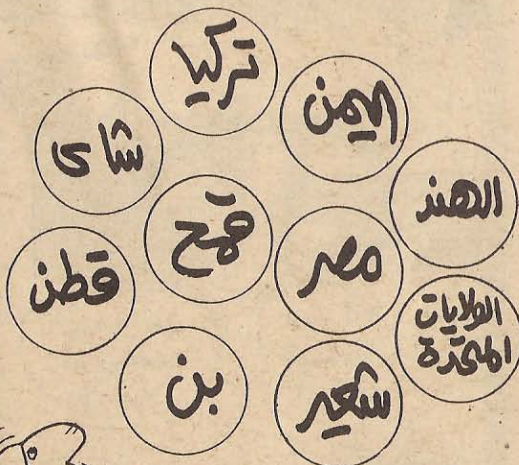 تركيا
اليمن
شاى
الهند
قمح
مصر
قطن
الولايات
المتحدة
بن
شعير